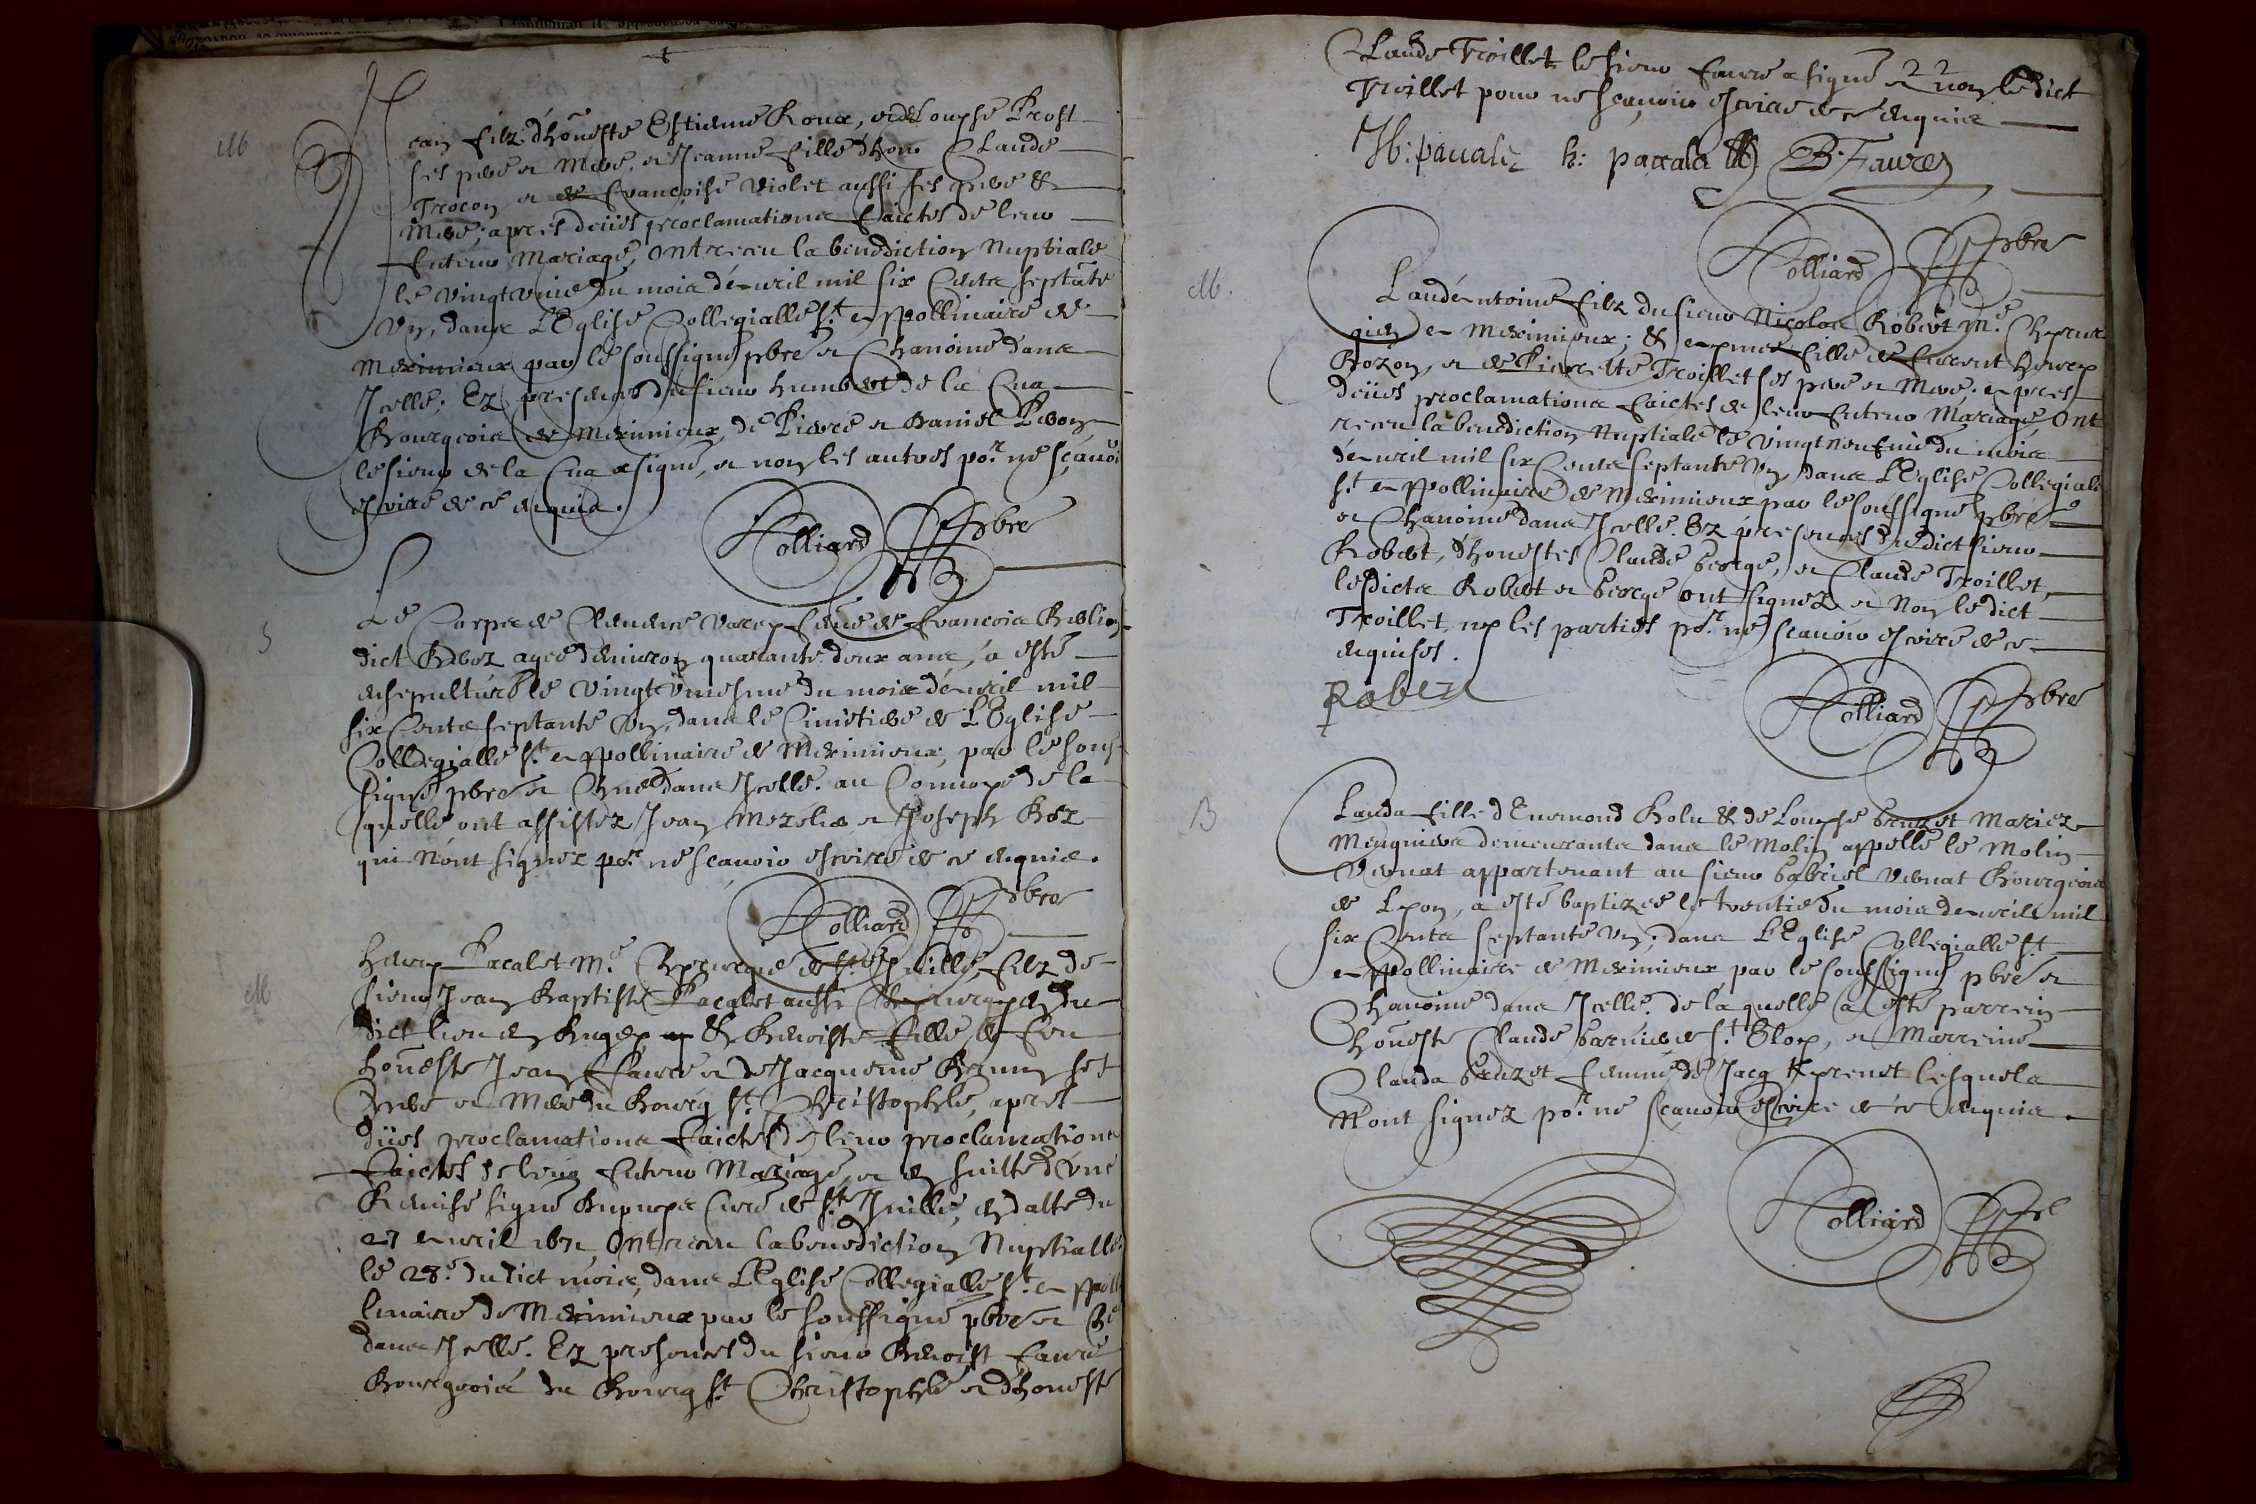 M
Jean filz d'honeste Estienne Roux, et de Louyse Prost
ses pere et mere, et Jeanne fille d'hon. Claude
Trocon et de Françoise Violet aussi ses pere &
mere, apres deües proclamations faictes de leur
futeur mariage, ont receu la benediction Nuptiale
le vingt unie du mois d'Avril mil six Cents septāte
Un, dans L'Eglise Collegialle St Appollinaire de
Meximieux par le soussigné pbre et Chanoine dans
Jcelle; Ez presences du sieur humbert de la Cua
Bourgeois de Meximieux, de Pierre et Daniel
le sieur de la Cua a signé, et non les autres por ne sçauoir
escrire de ce enquis.
Colliard pbre
S
Le Corps de Clemence Varey femme de Francois
dict agée d'enuiron quarante deux ans, a esté
ensepulturé le Vingt uniesme du mois d'Avril mil
six Cents septante Un, dans le Cimetiere de L'Eglise
Collegialle St Appollinaire de Meximieux, par le sous-
signé pbre et Chne dans Jcelle. au Conuoy de la
quelle ont assistez Jean et Joseph
qui n'ont signez por ne scauoir escrire de ce enquis.
Colliard pbre
M
Henry Pacalet Me Chyrurgie de St filz de
sieur Jean Baptiste Pacalet aussi Chyrurgien du
dict lieu en Bugey & Benoiste fille de feu
honeste Jean Faure et de Jacqueme Brunn ses
pere et mere du Bourg St Christophle, apres
dües proclamations faictes de leur proclamations
faictes de leur futeur Mariage, et en suitte d'vne
Remise signé Curé de Ste Juille, en datte du
27 Auril 1671 Ont receu la benediction Nuptialle
le 28e. du dict mois, dans L'Eglise Collegialle St Appol
linaire de Meximieux par le soussigné pbre et Chne
dans Jcelle. Ez presences du sieur Benoist Faure
Bourgeois du Bourg St Christophle et d'honeste
Claude Troillet le sieur Faure a signé et non le dict
Troillet pour ne sçauoir escrire de ce enquis
h: pacalet B. Faure
Colliard pbre
M.
Claude Antoine filz du sieur Nicolas Robert Me Chyrur
gien a Meximieux; & fille de
Bozon, et de Pierrette Troillet ses pere et mere; apres
deües proclamations faictes de leur futeur Mariage Ont
receu la benediction Nuptiale le vingt neufuie du mois
d'Auril mil six Cents septante Un, dans L'Eglise Collegiale
St Appollinaire de Meximieux par le soussigné pbre
et Chanoine dans Jcelle. Ez presences du dict sieur
Robert, d'honestes Claude George, et Claude Troillet,
lesdicts Robert et George ont signez et Non le dict
Troillet, ny les parties por ne scauoir escrire de ce
enquises.
Robert
Colliard pbre
B
Clauda fille d'Enemond & de Louyse mariez
Meugniers demeurants dans le Molin appellé le Molin
Vernat appartenant au sieur Gabriel Vernat Bourgeois
de Lyon, a esté baptizée le trentie du mois d'Auril mil
six Cents septante Un; dans L'Eglise Collegialle St
Appollinaire de Meximieux par le soussigné pbre et
Chanoine dans Jcelle. de la quelle a esté parrein
honeste Claude de St Eloy, et Marreine
Clauda femme de Jacq lesquels
N'ont signez por ne scauoir escrire de ce enquis.
Colliard